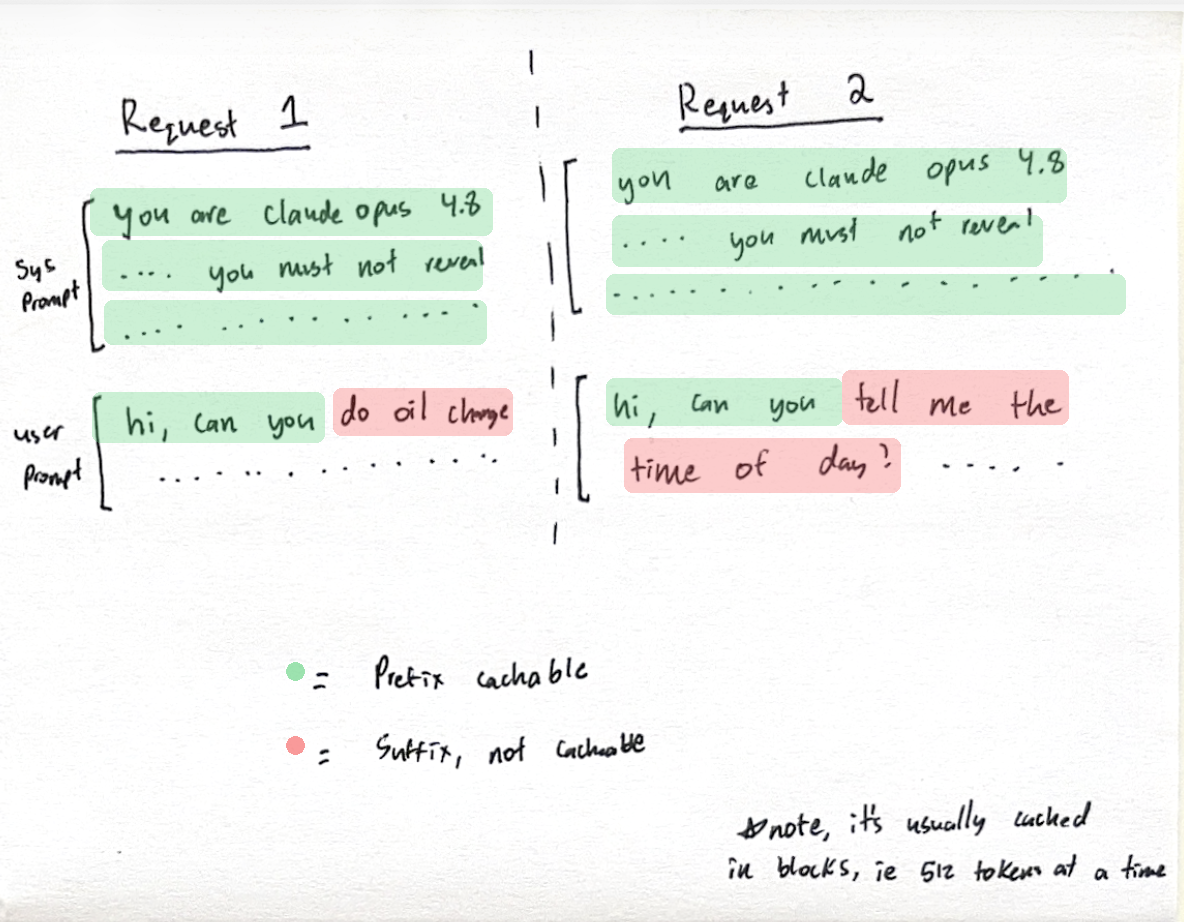 Request 1
Sys
Prompt
you are claude opus 4.8
.... you must not reveal
.... .. . . . . . . --- .
user
Prompt
hi, can you do oil change
... . .. . . . . . . . . ..
Request 2
you are claude opus 4.8
.... you must not reveal
. . . . . . . . . . . . . . . . . .
hi, can you tell me the
time of day? .... .
= Prefix cachable
= Suffix, not cacheable
☆note, it's usually cached
in blocks, ie 512 tokens at a time